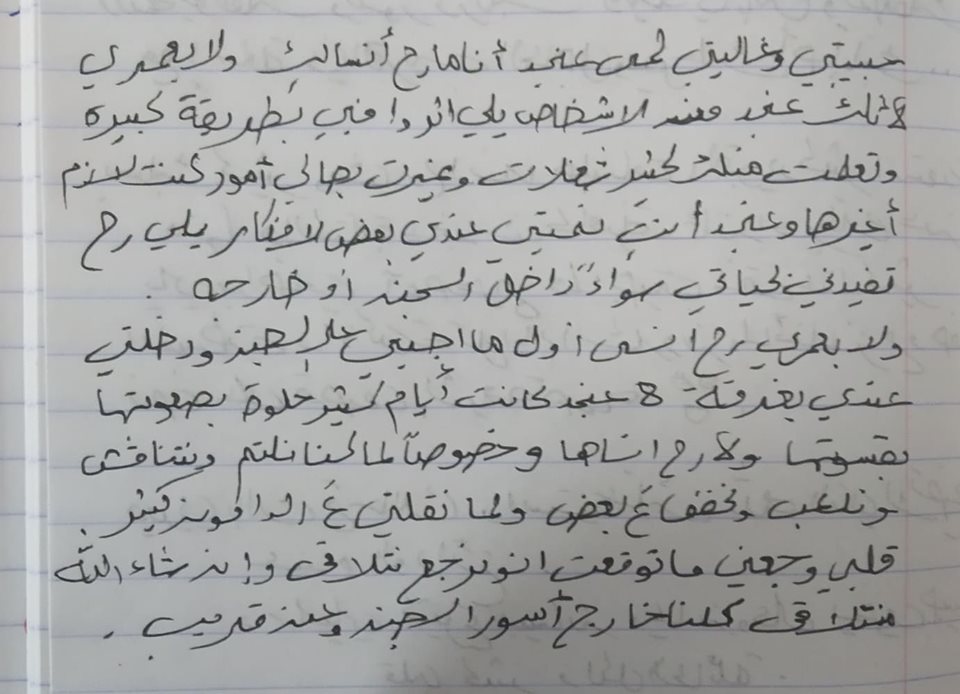 حبيبتي وغاليتي لحن عنجد أنا مارح أنساكِ ولا بعمري
لأنك عنجد من الاشخاص يلي اثروا فيي بطريقة كبيرة
وتعلمت منك كثير شغلات وغيرت بحالي أمور كنت لازم
أغيرها وعنجد أنتِ نميتي عندي بعض الافكار يلي رح
تفيدني بحياتي سواءً داخل السجن أو خارجه .
ولا بعمري رح انسى اول ما اجيتي على السجن ودخلتي
عندي بغرفة 8 عنجد كانت أيام كثير حلوة بصعوبتها
بقسوتها ولا رح انساها وخصوصاً لما كنا نلتم ونتناقش
ونلعب ونخفف عَ بعض ولما نقلتي عَ الدامون كثير
قلبي وجعني ما توقعت انو نرجع نتلاقى وإن شاء الله
منتلاقى كلنا خارج أسور السجن وعن قريب .